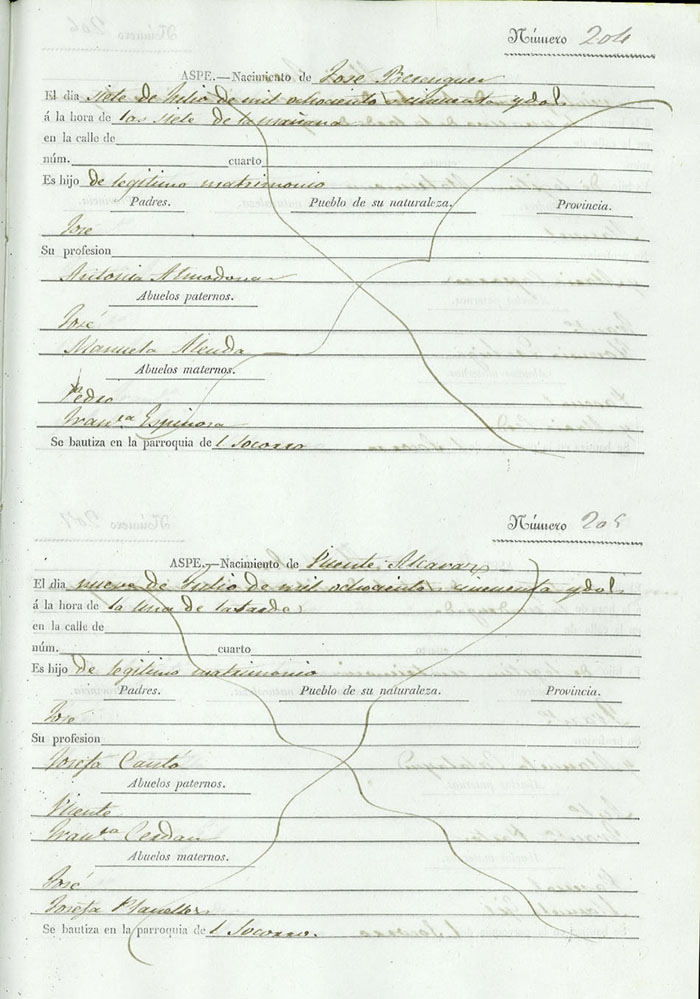 Número 204
ASPE.—Nacimiento de José Berenguer
El dia siete de Julio de mil ochocientos cincuenta y dos
á la hora de las siete de la mañana
en la calle de
núm. cuarto
Es hijo de legitimo matrimonio
Padres. Pueblo de su naturaleza. Provincia.
José
Su profesion
Antonia Almodovar
Abuelos paternos.
José
Manuela Alenda
Abuelos maternos.
Pedro
Fran.ca Espinosa
Se bautiza en la parroquia de l Socorro
Número 205
ASPE.—Nacimiento de Vicente Alcaraz
El dia nueve de Julio de mil ochocientos cincuenta y dos
á la hora de la una de la tarde
en la calle de
núm. cuarto
Es hijo de legitimo matrimonio
Padres. Pueblo de su naturaleza. Provincia.
José
Su profesion
Josefa Cantó
Abuelos paternos.
Vicente
Fran.ca Cerdan
Abuelos maternos.
José
Josefa Planelles
Se bautiza en la parroquia de l Socorro.